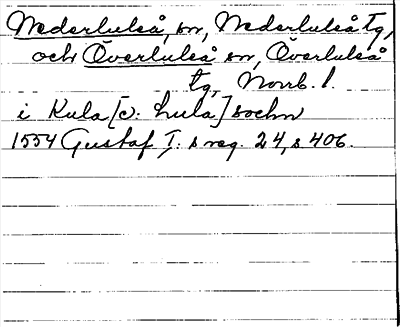 Nederluleå, sn, Nederluleå tg,
och Överluleå sn, Överluleå
tg, Norrb. l.
i Kula [ɔ: Lula] sochn
1554 Gustaf I: s reg. 24, s 406.